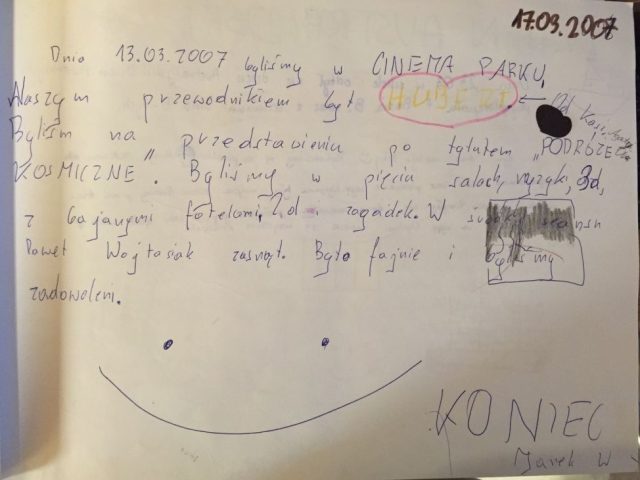 17.03.2007
Dnia 13.03.2007 byliśmy w CINEMA PARKU,
Naszym przewodnikiem był HUBERT. ← Od Kasi
Byliśm na „przedstawieniu po tytułem „PODRÓŻE
KOSMICZNE". Byliśmy w pięciu salach, myzyki, 3d,
z fajanymi fotelami, 2,d i zagadek. W
Paweł Wojtasiak zasnął. Było fajnie i byliśmy
zadowoleni.
KONIEC
Jarek W